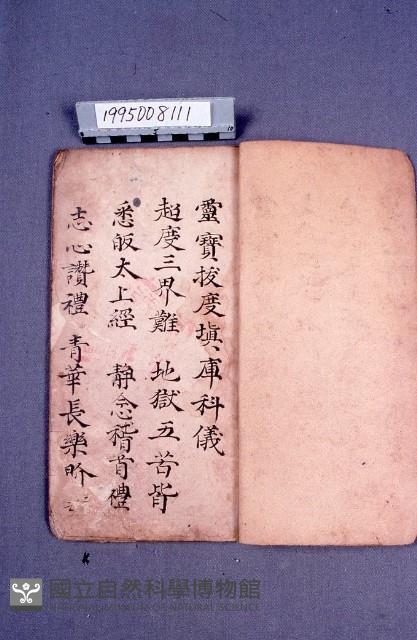 1995008111
10
靈寶拔度填庫科儀
超度三界難 地獄五苦皆
悉皈太上經 静念稽首禮
志心讚禮 青華長樂
國立自然科學博物館
NATIONAL MUSEUM OF NATURAL SCIENCE